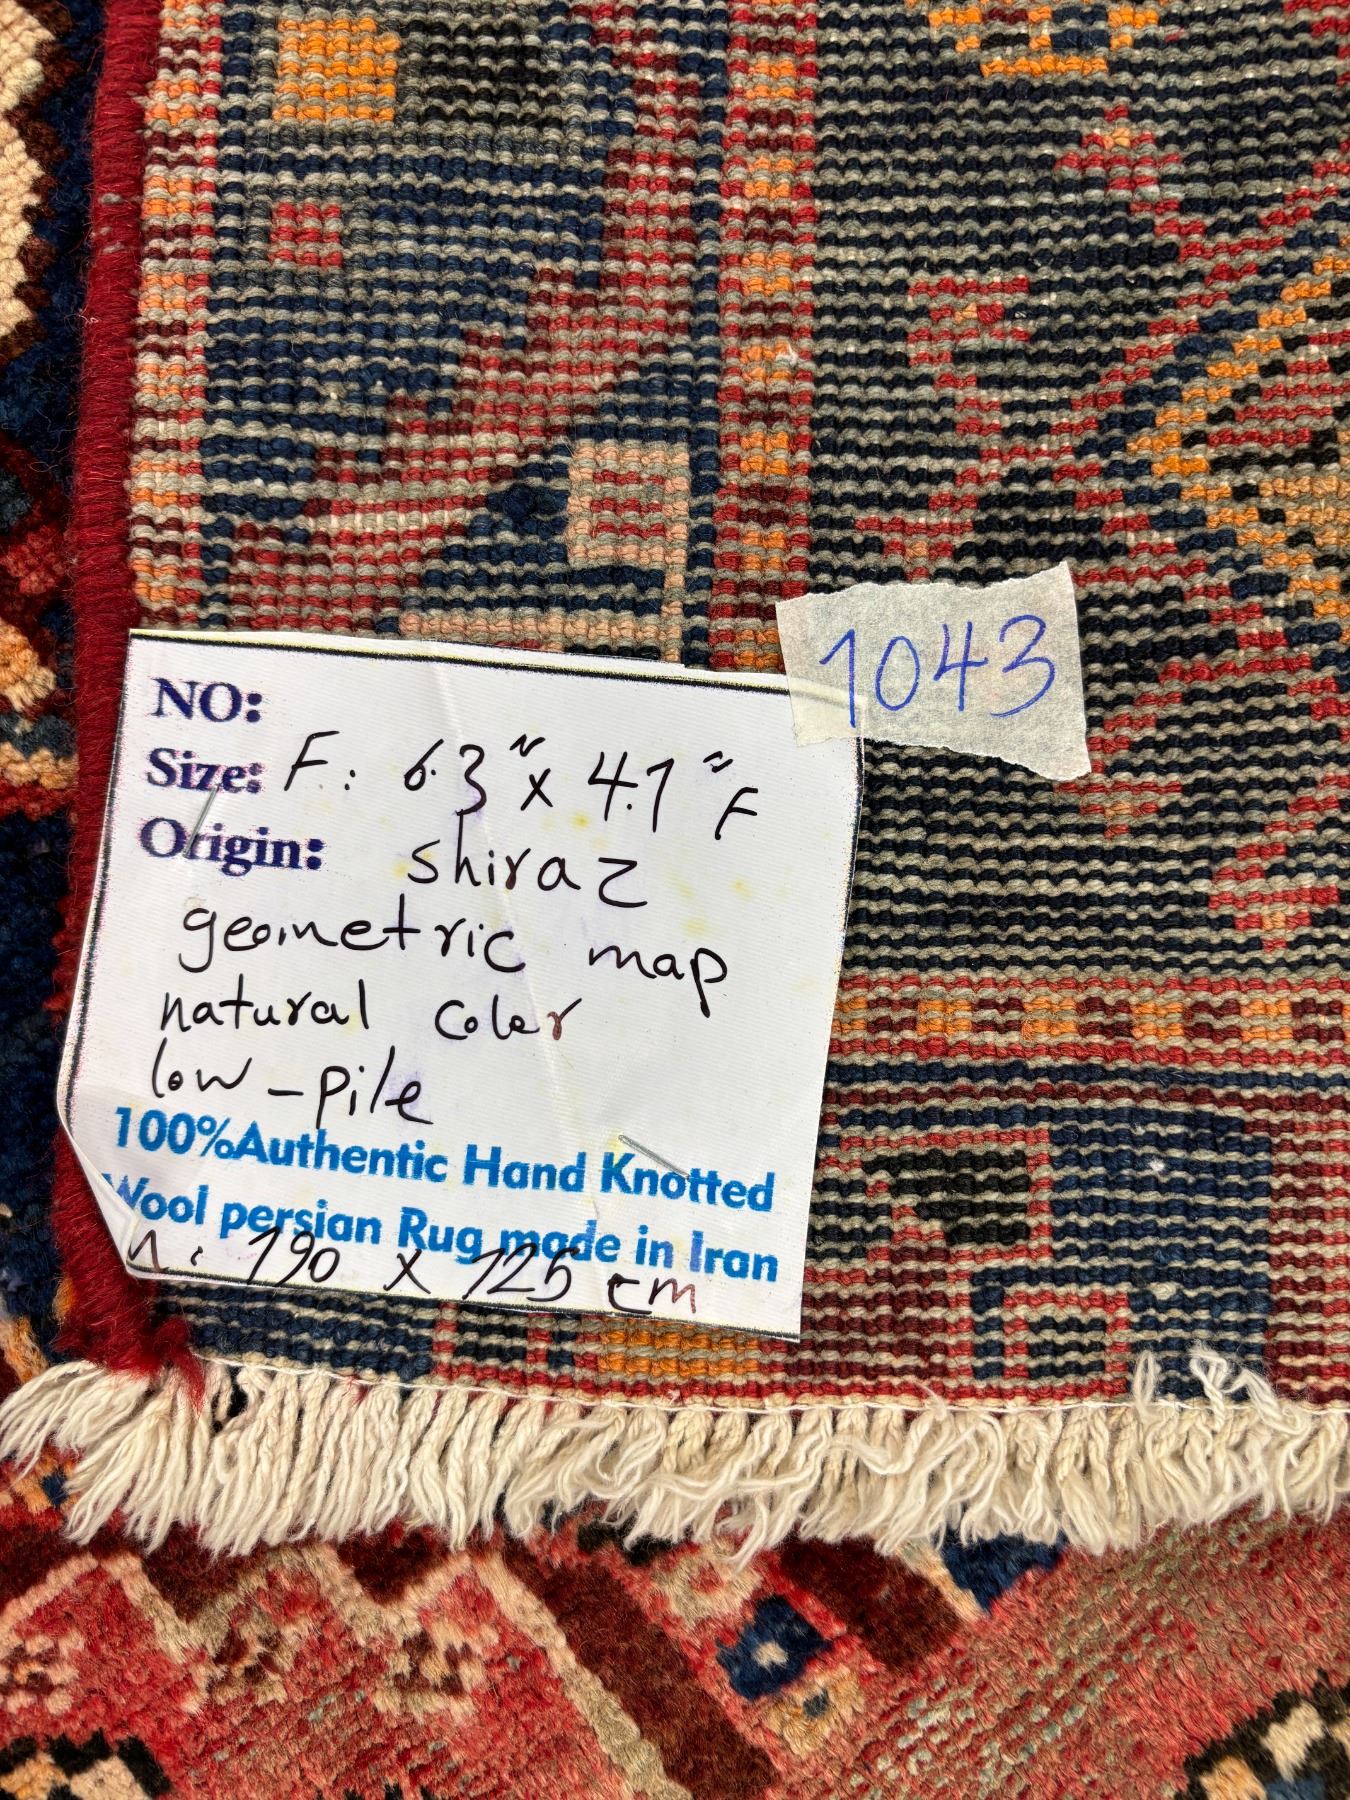 1043
NO:
Size: F: 6.3" x 4.1" F
Origin: shiraz
geometric map
natural color
low-pile
100%Authentic Hand Knotted
Wool persian Rug made in Iran
190 x 125 cm